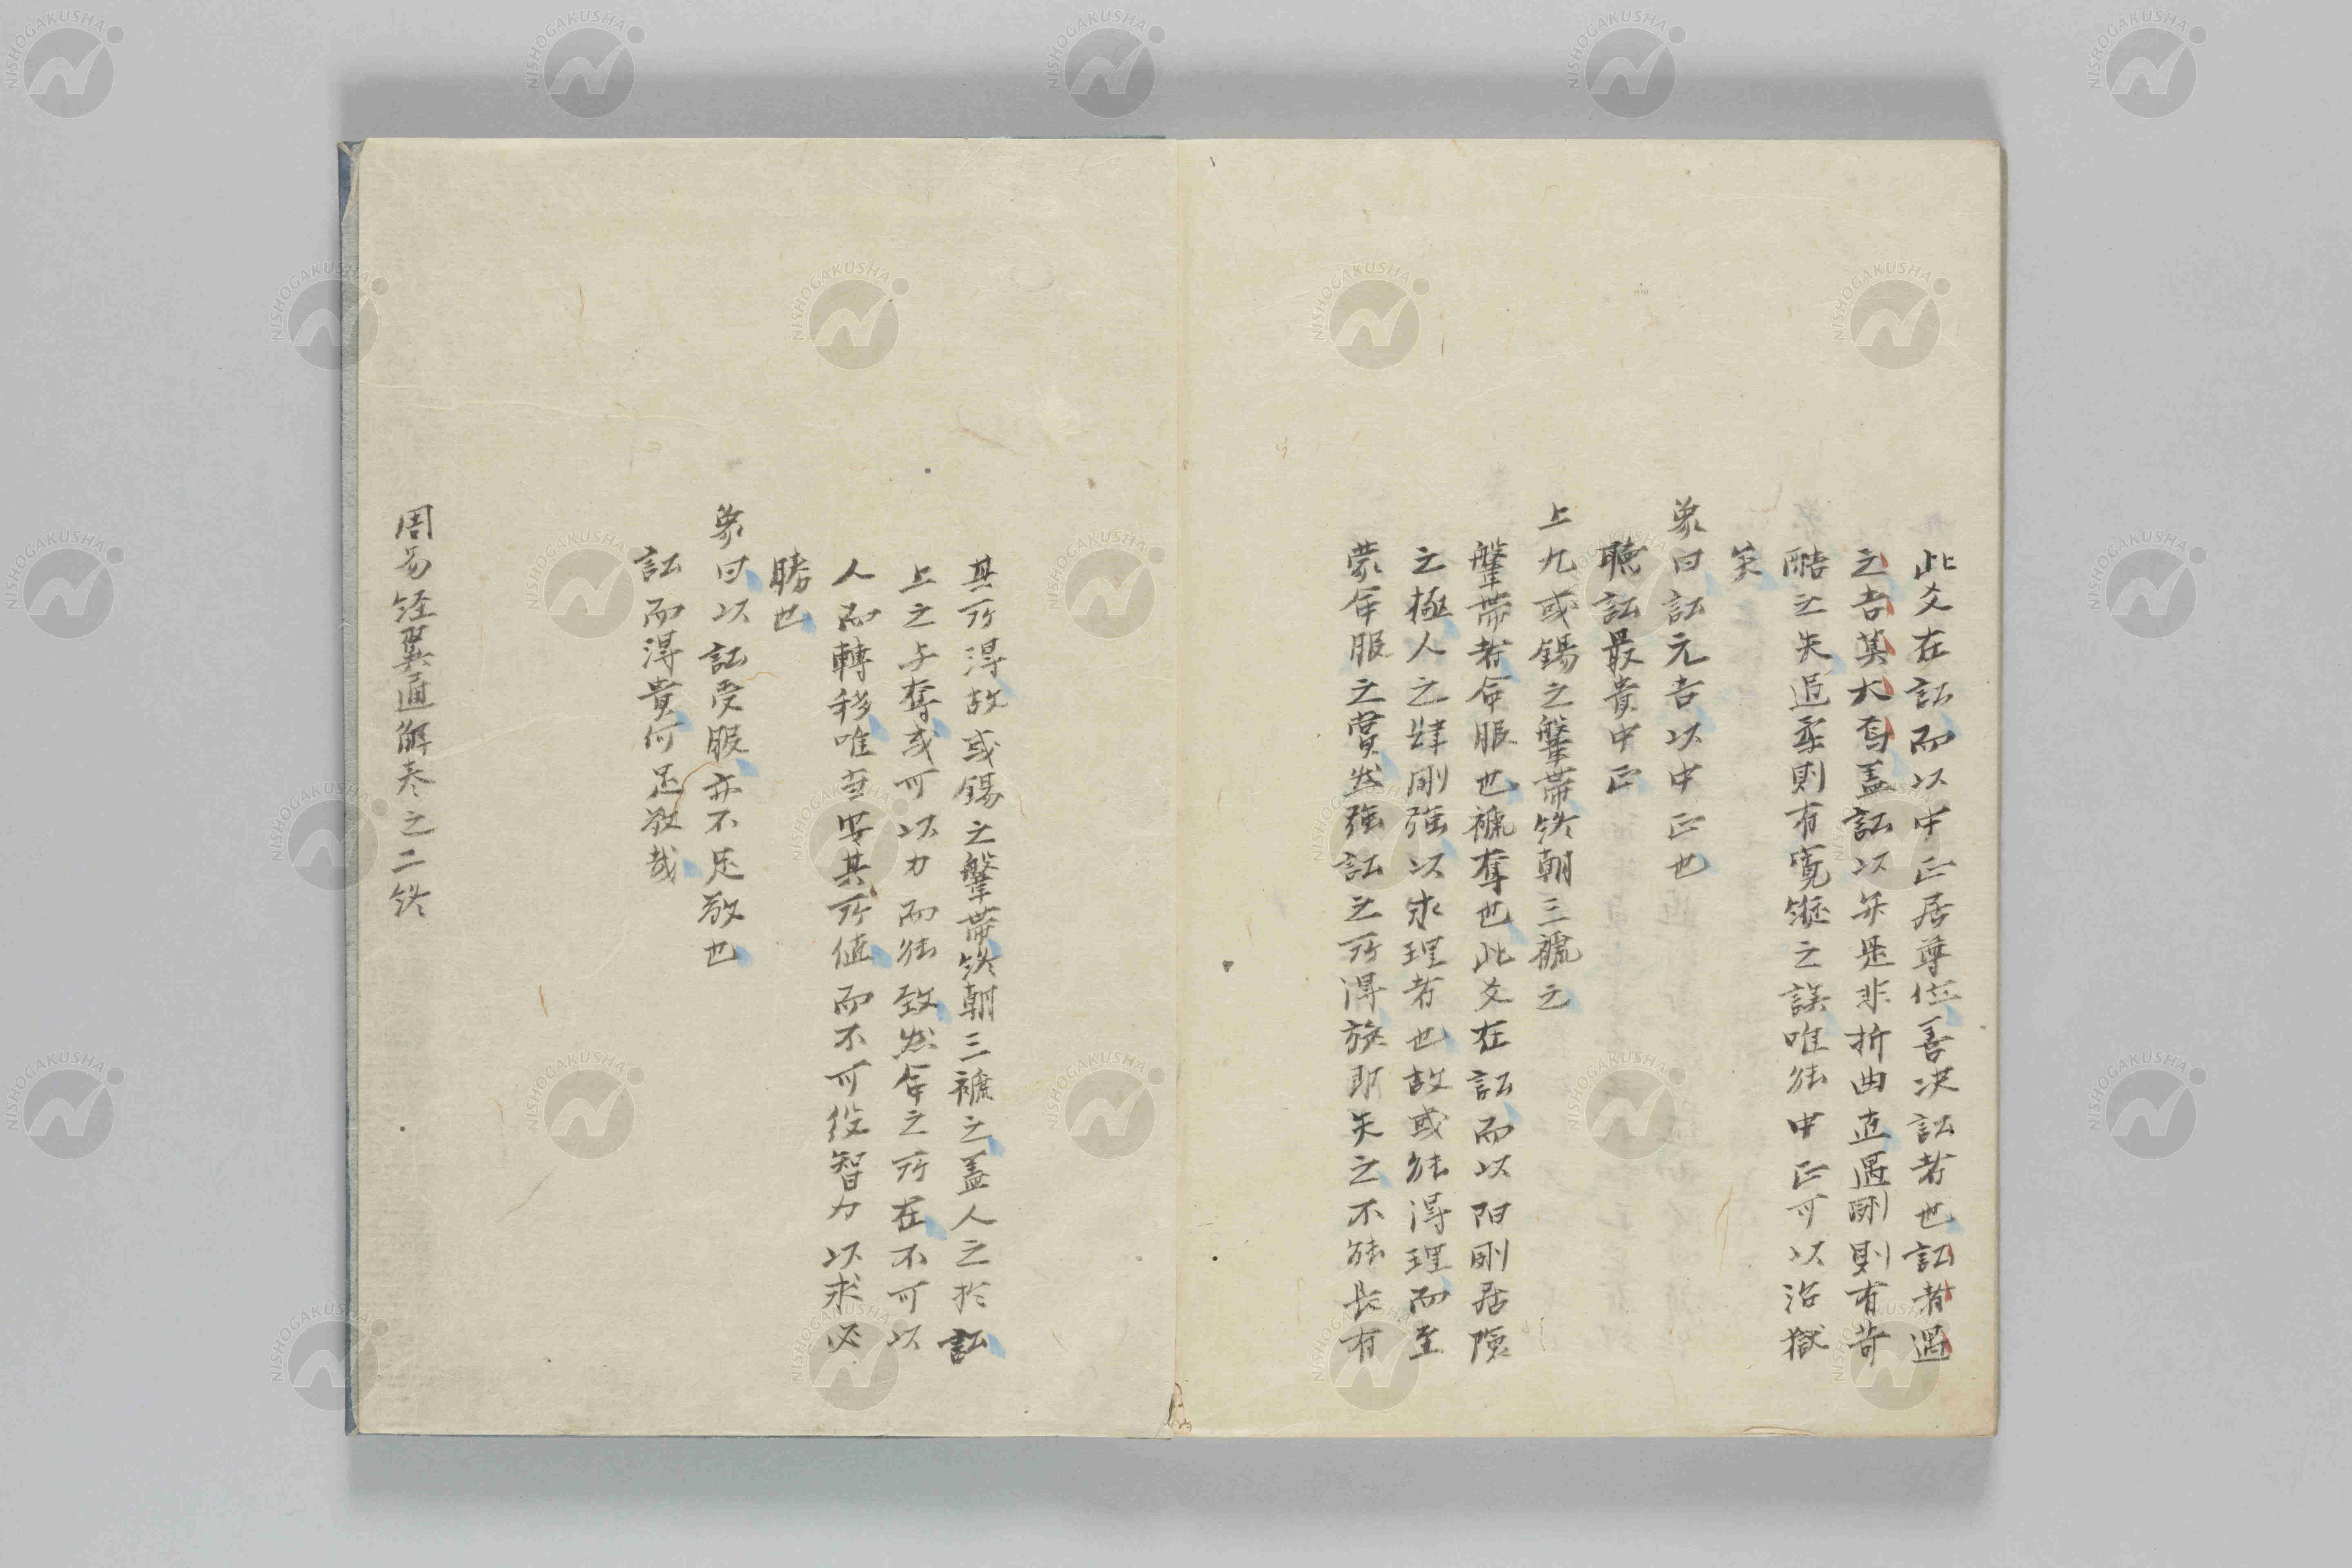 此爻在訟而以中正居尊位善決訟者也訟者遇
之吉莫大焉盖訟以弁是非折曲直過剛則有苛
酷之失過柔則有寛縱之誤唯能中正可以治獄
矣
象曰訟元吉以中正也
聽訟最貴中正
上九或錫之鞶帶終朝三褫之
鞶帶者命服也褫奪也此爻在訟而以阳剛居險
之極人之肆剛強以求理者也故或能得理而至
蒙命服之賞然強訟之所得旋即失之不能長有
其所得故或錫之鞶帶終朝三褫之盖人之於訟
上之与奪或可以力而能致然命之所在不可以
人而轉移唯當安其所値而不可役智力以求必
勝也
象曰以訟受服亦不足敬也
訟而得貴何足敬哉
周易経翼通解巻之二終